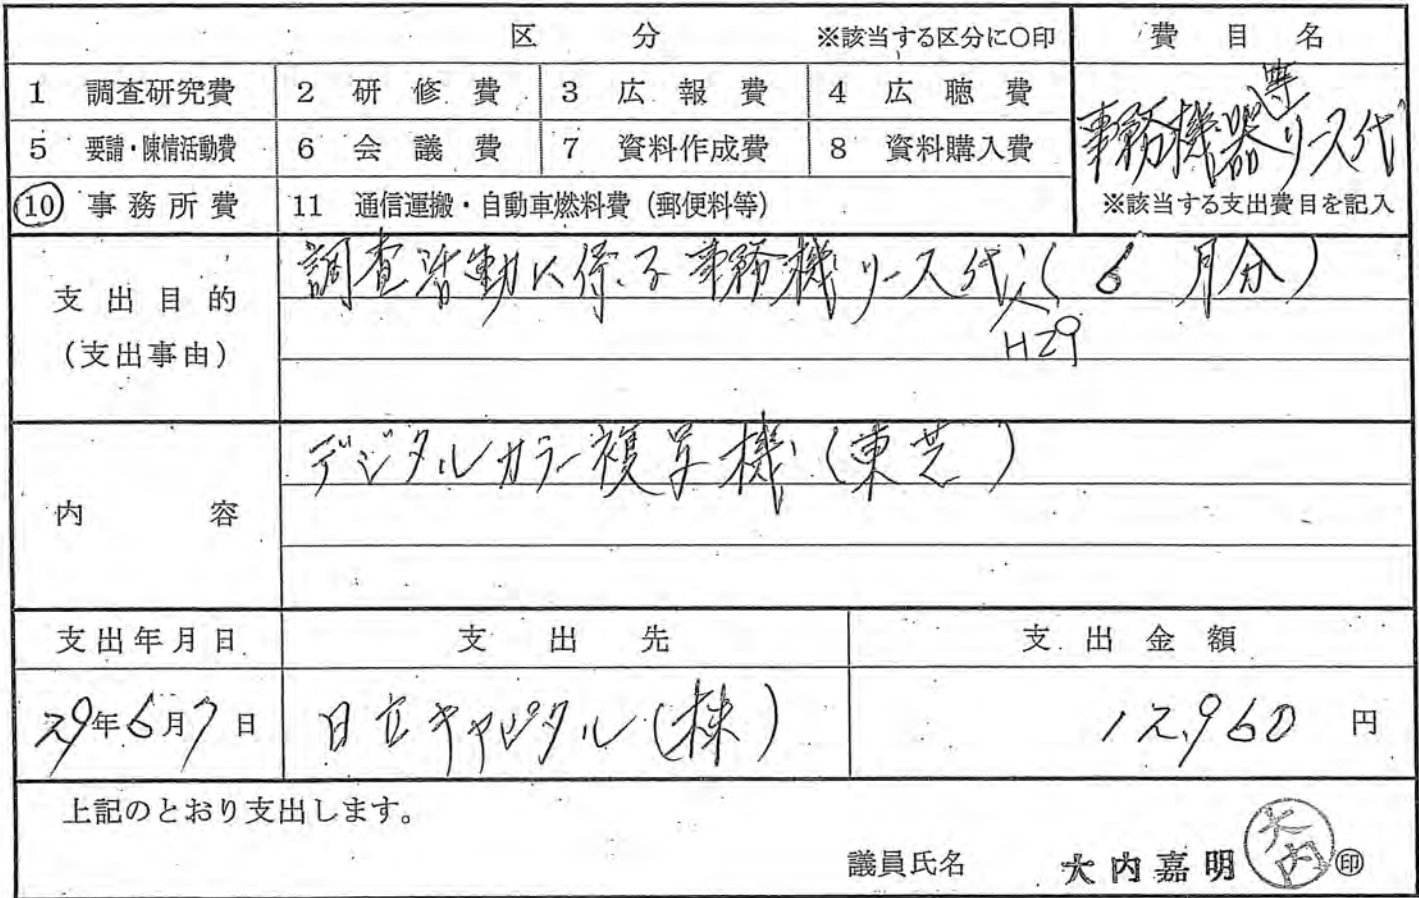 区 分 ※該当する区分に○印 費 目 名
1 調査研究費 2 研 修 費 3 広 報 費 4 広 聴 費
事務機器等リース代
5 要請・陳情活動費 6 会 議 費 7 資料作成費 8 資料購入費
10 事務所費 11 通信運搬・自動車燃料費（郵便料等） ※該当する支出費目を記入
支 出 目 的
（支出事由）
調査活動に係る事務機リース代（6月分）
H29
内 容
デジタルカラー複写機（東芝）
支出年月日 支 出 先 支 出 金 額
29年6月7日 日立キャピタル（株） 12,960 円
上記のとおり支出します。
議員氏名 大内嘉明 大内 印